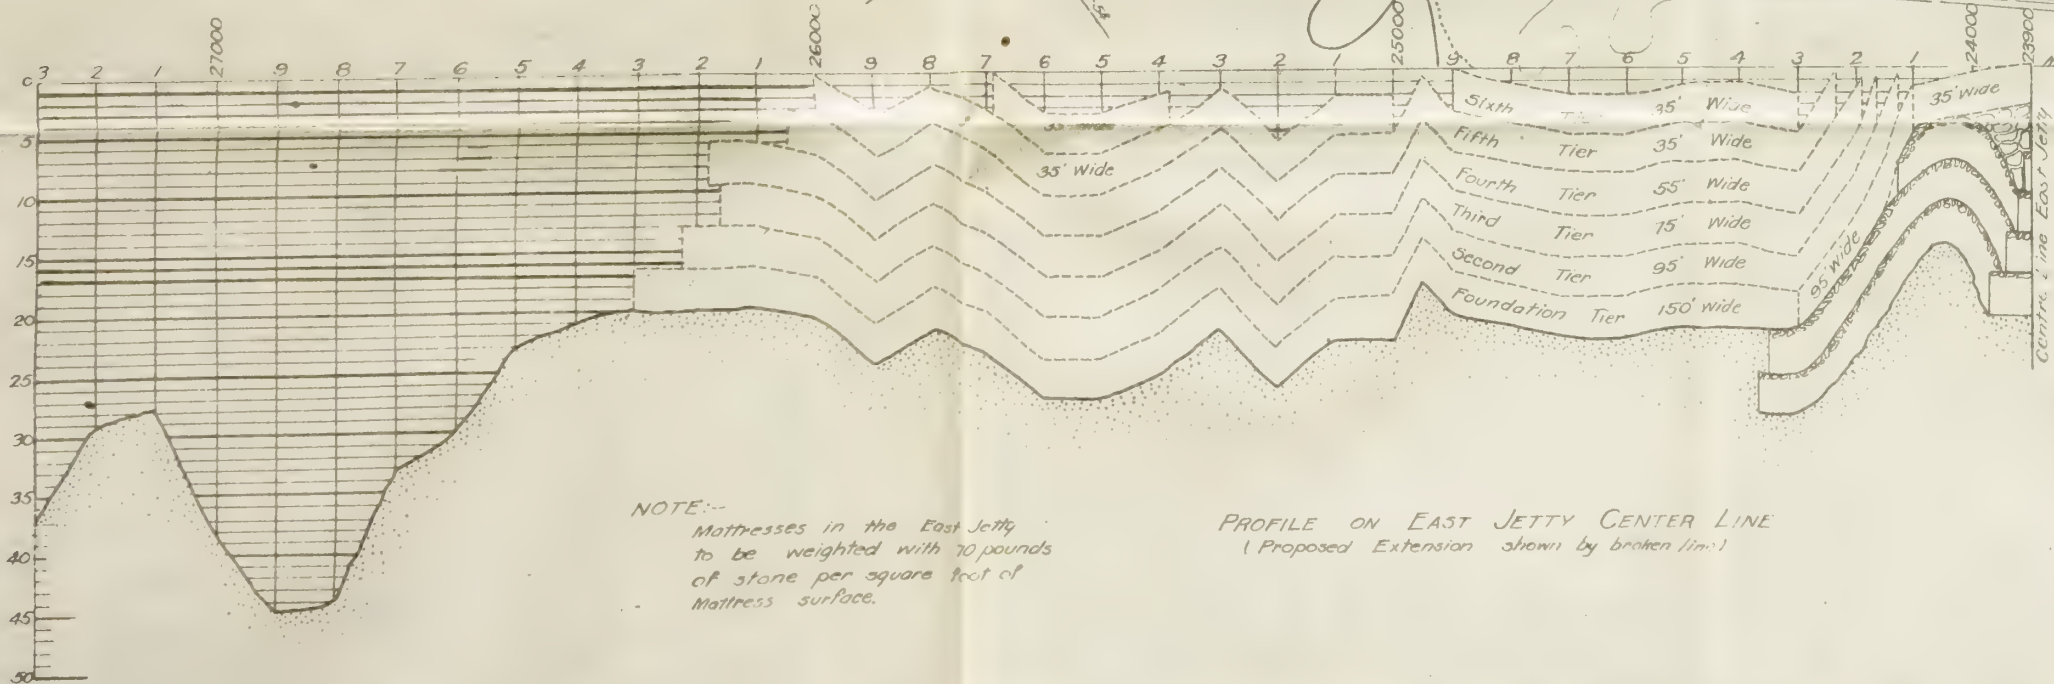 3 2 1 27000 9 8 7 6 5 4 3 2 1 26000 9 8 7 6 5 4 3 2 1 25000 9 8 7 6 5 4 3 2 1 24000 23900
0
5
10
15
20
25
30
35
40
45
50
35' Wide
35' Wide
Sixth Tier 35' Wide
Fifth Tier 35' Wide
Fourth Tier 55' Wide
Third Tier 75' Wide
Second Tier 95' Wide
Foundation Tier 150' Wide
95' Wide
35' Wide
Centre Line East Jetty
NOTE:-
Mattresses in the East Jetty
to be weighted with 70 pounds
of stone per square foot of
Mattress surface.
PROFILE ON EAST JETTY CENTER LINE
(Proposed Extension shown by broken line)